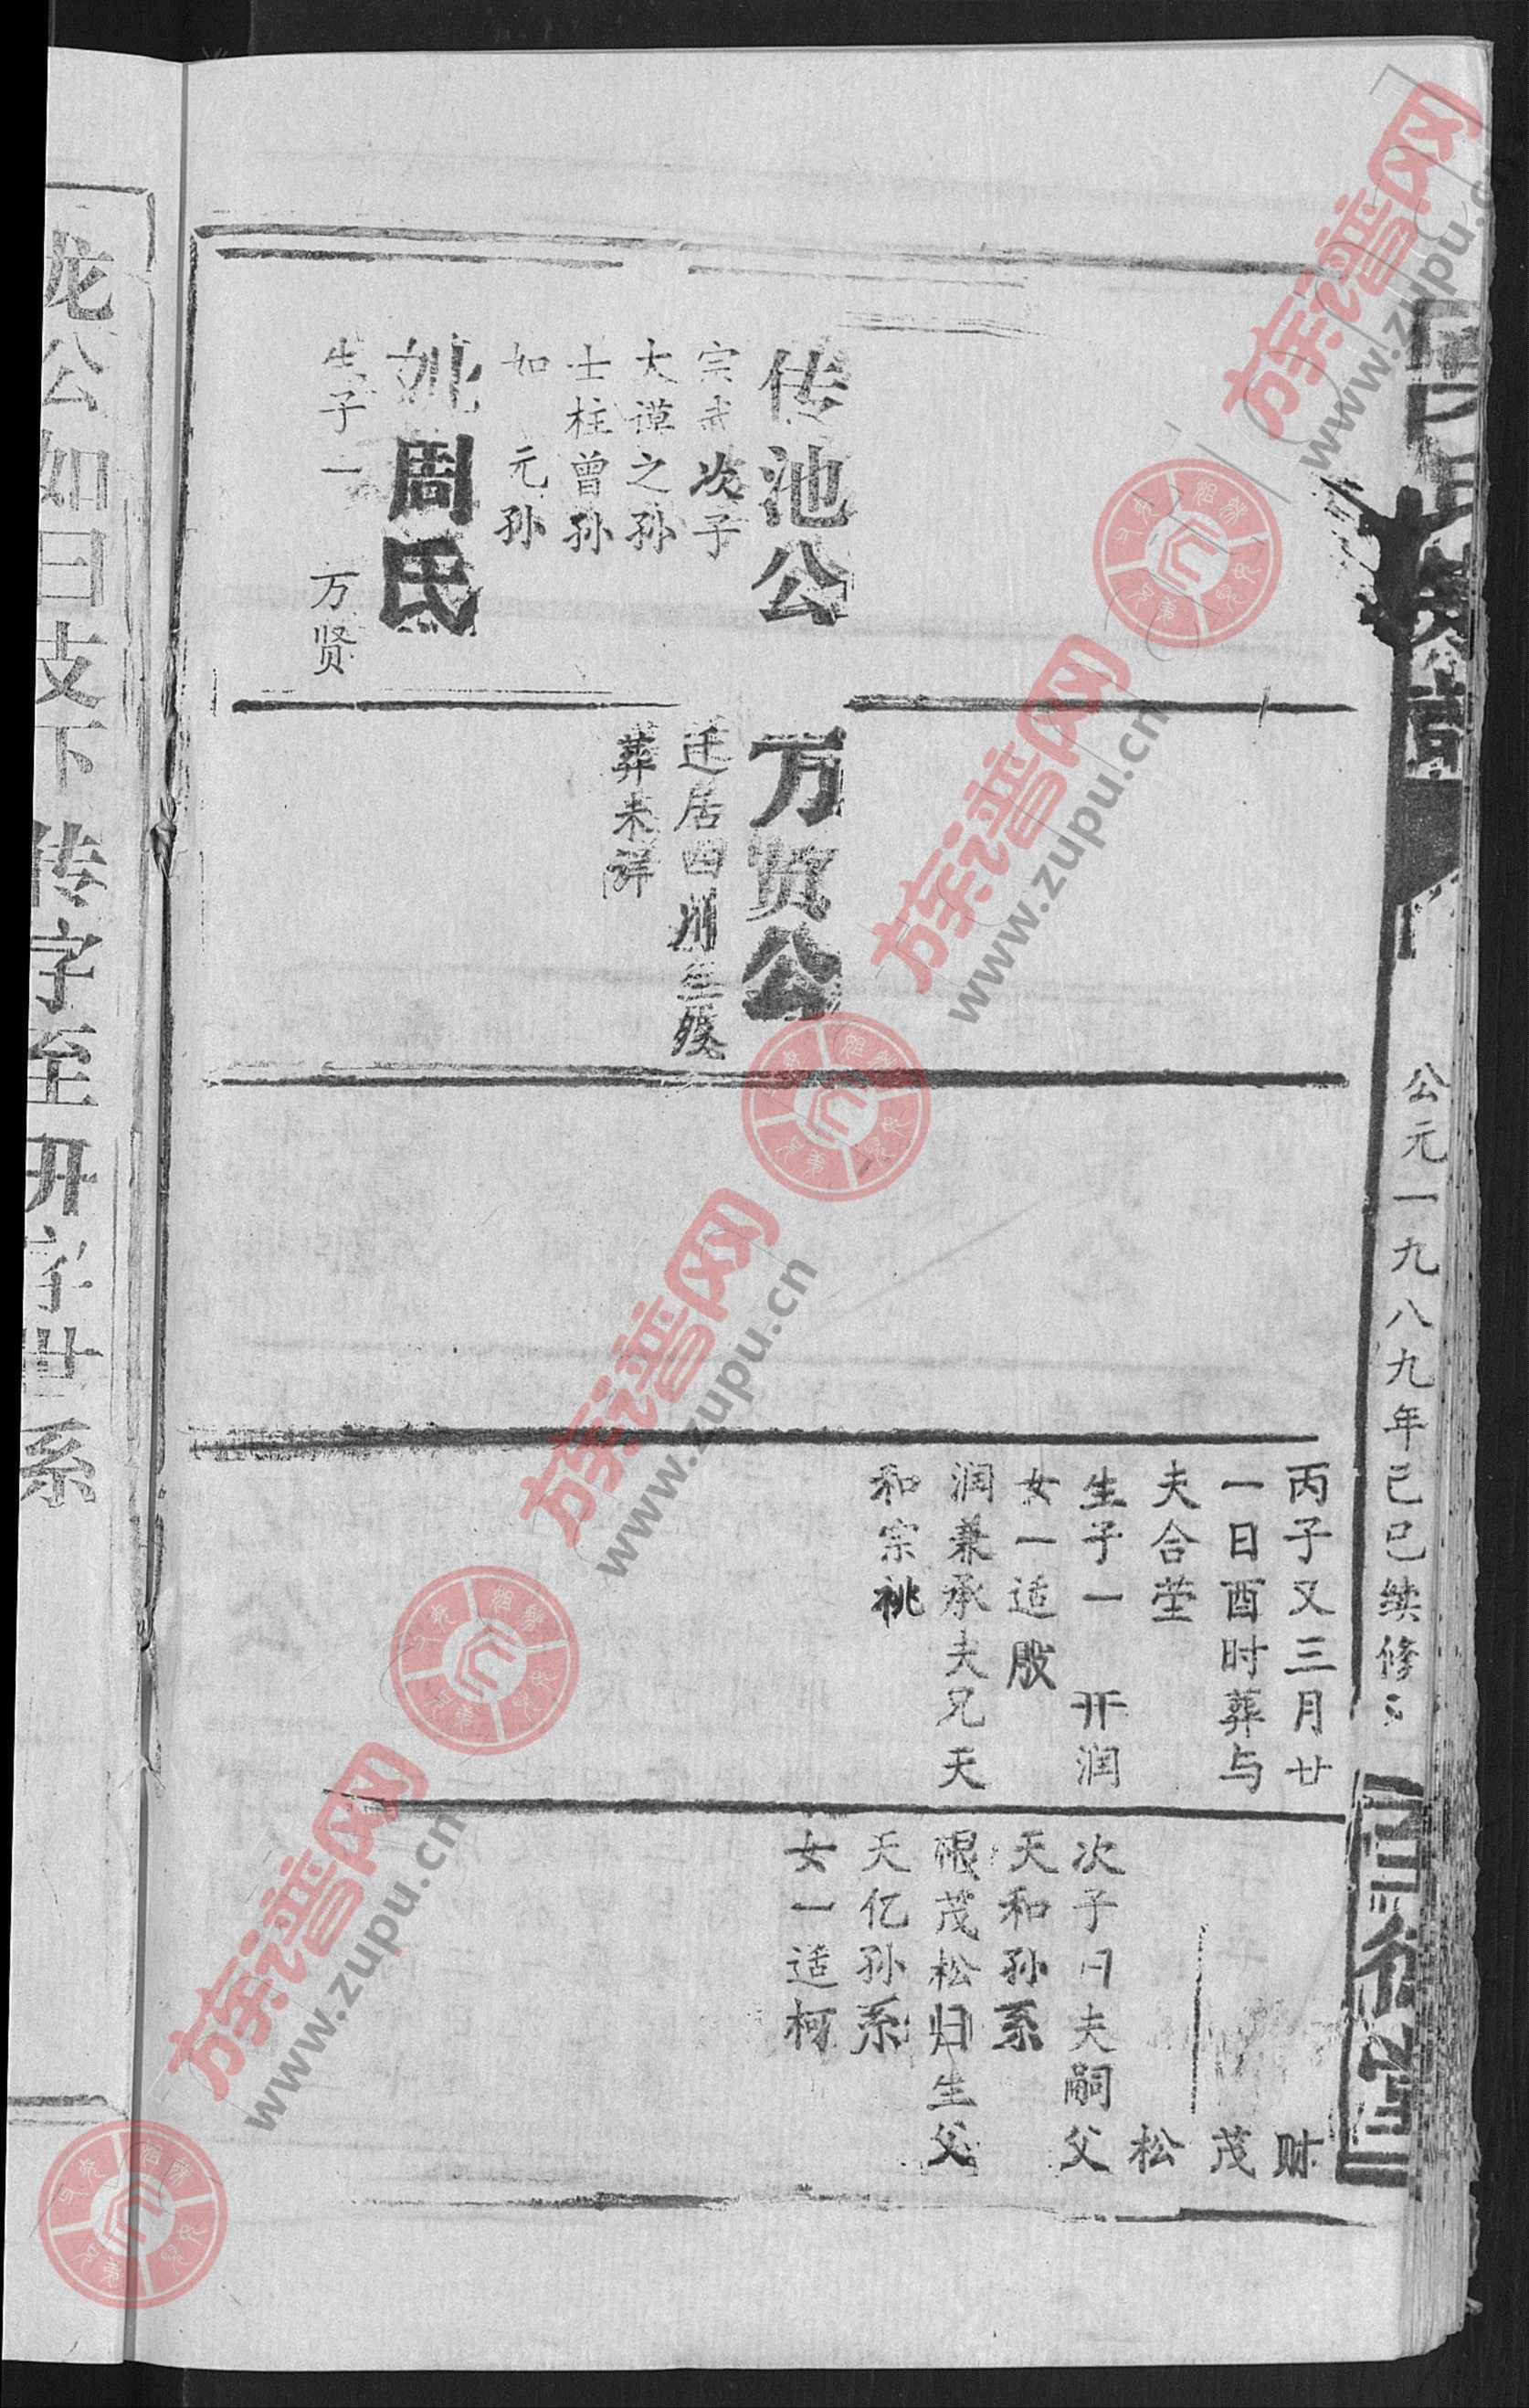 公元一九八九年己巳续修
传池公
宗 次子
大谟之孙
士柱曾孙
如 元孙
妣周氏
生子一 万贤
万贤公
迁居四川生殁
葬未详
丙子又三月廿
一日酉时葬与
夫合茔
生子一 开润
女一适殷
润兼承夫兄天
和宗祧
财
茂
松
次子 夫嗣父
天和孙系
茂松归生父
天亿孙系
女一适柯
龙公如曰支下 传字至开字世系
族谱网
www.zupu.cn